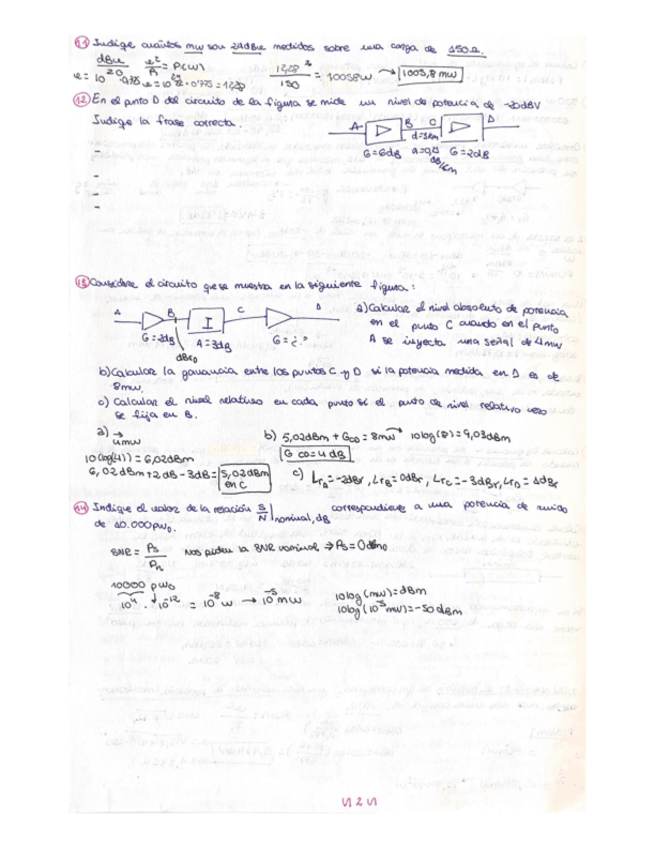 11 Indique cuántos mw son 24dBu medidos sobre una carga de 150Ω.
dBu/20 e²/R = P(W) 12,28²/150 = 1'0058w → 1005,8 mw
e = 10 · 0,775 e = 10 · 0'775 = 12,28
12 En el punto D del circuito de la figura se mide un nivel de potencia de -20dBV
Indique la frase correcta.
A B C D
d=3km
G=6dB a=0,3 dB/km G=2dB
-
-
-
13 Considere el circuito que se muestra en la siguiente figura:
A B I C D
G=2dB A=3dB G=¿?
dBr0
a) Calcular el nivel absoluto de potencia
en el punto C cuando en el punto
A se inyecta una señal de 4mw
b) Calcular la ganancia entre los puntos C y D si la potencia medida en D es de
8mw.
c) Calcular el nivel relativo en cada punto si el punto de nivel relativo cero
se fija en B.
a) → 4mw
10log(4)) = 6,02dBm
6,02dBm+2dB-3dB= 5,02dBm en C
b) 5,02dBm + GCD = 8mw → 10log(8)=9,03dBm
G CD=4dB
c) LrA=-2dBr, LrB=0dBr, LrC=-3dBr, LrD=1dBr
14 Indique el valor de la relación S/N|nominal,dB correspondiente a una potencia de ruido
de 10.000pW0.
SNR = Ps/Pn Nos piden la SNR nominal ⇒ Ps=0dBm0
10000 pW0
10⁴ · 10⁻¹² = 10⁻⁸ w → 10⁻⁵ mw
10log(mw)=dBm
10log(10⁻⁵mw)=-50dBm
2